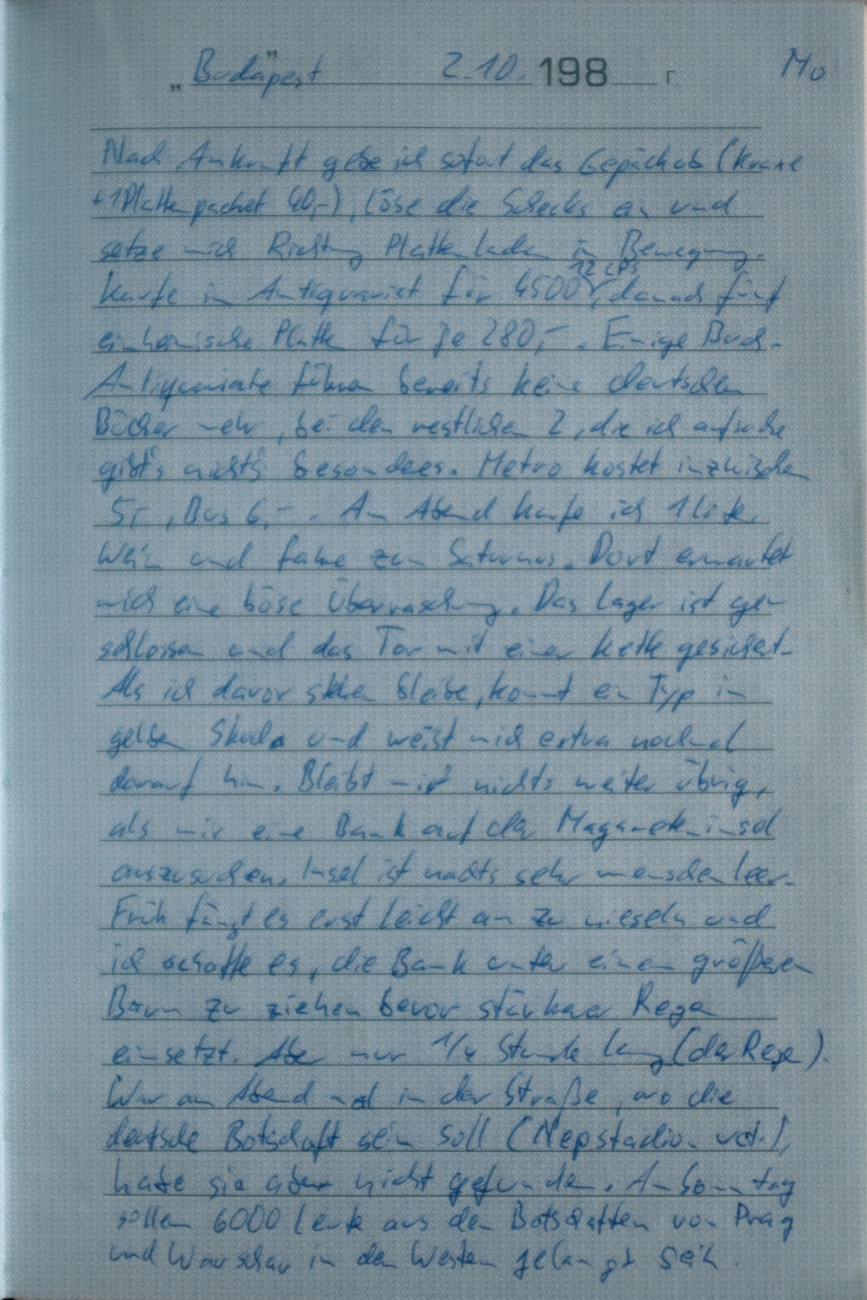 „Budapest" 2.10. 198 г. Mo
Nach Ankunft gebe ich sofort das Gepäck ab (Kraxe
+ 1 Plattenpacket 40,-), löse die Schecks ein und
setze mich Richtung Plattenladen in Bewegung.
12 LPs
Kaufe im Antiquariat für 4500, danach fünf
einheimische Platten für je 280,-. Einige Buch-
Antiquariate führen bereits keine deutschen
Bücher mehr, bei den restlichen 2, die ich aufsuche
gibt's nichts besonderes. Metro kostet inzwischen
5,-, Bus 6,-. Am Abend kaufe ich 1 Liter
Wein und fahre zum Saturnus. Dort erwartet
mich eine böse Überraschung. Das Lager ist ge-
schlossen und das Tor mit einer Kette gesichert.
Als ich davor stehen bleibe, kommt ein Typ im
gelben Skoda und weist mich extra nochmal
darauf hin. Bleibt mir nichts weiter übrig,
als mir eine Bank auf der Magareteninsel
auszusuchen. Insel ist nachts sehr menschenleer.
Früh fängt es erst leicht an zu nieseln und
ich schaffe es, die Bank unter einen größeren
Baum zu ziehen bevor stärkerer Regen
einsetzt. Aber nur 1/4 Stunde lang (der Regen).
War am Abend noch in der Straße, wo die
deutsche Botschaft sein soll (Nepstadion ut.),
habe sie aber nicht gefunden. Am Sonntag
sollen 6000 Leute aus den Botschaften von Prag
und Warschau in den Westen gelangt sein.